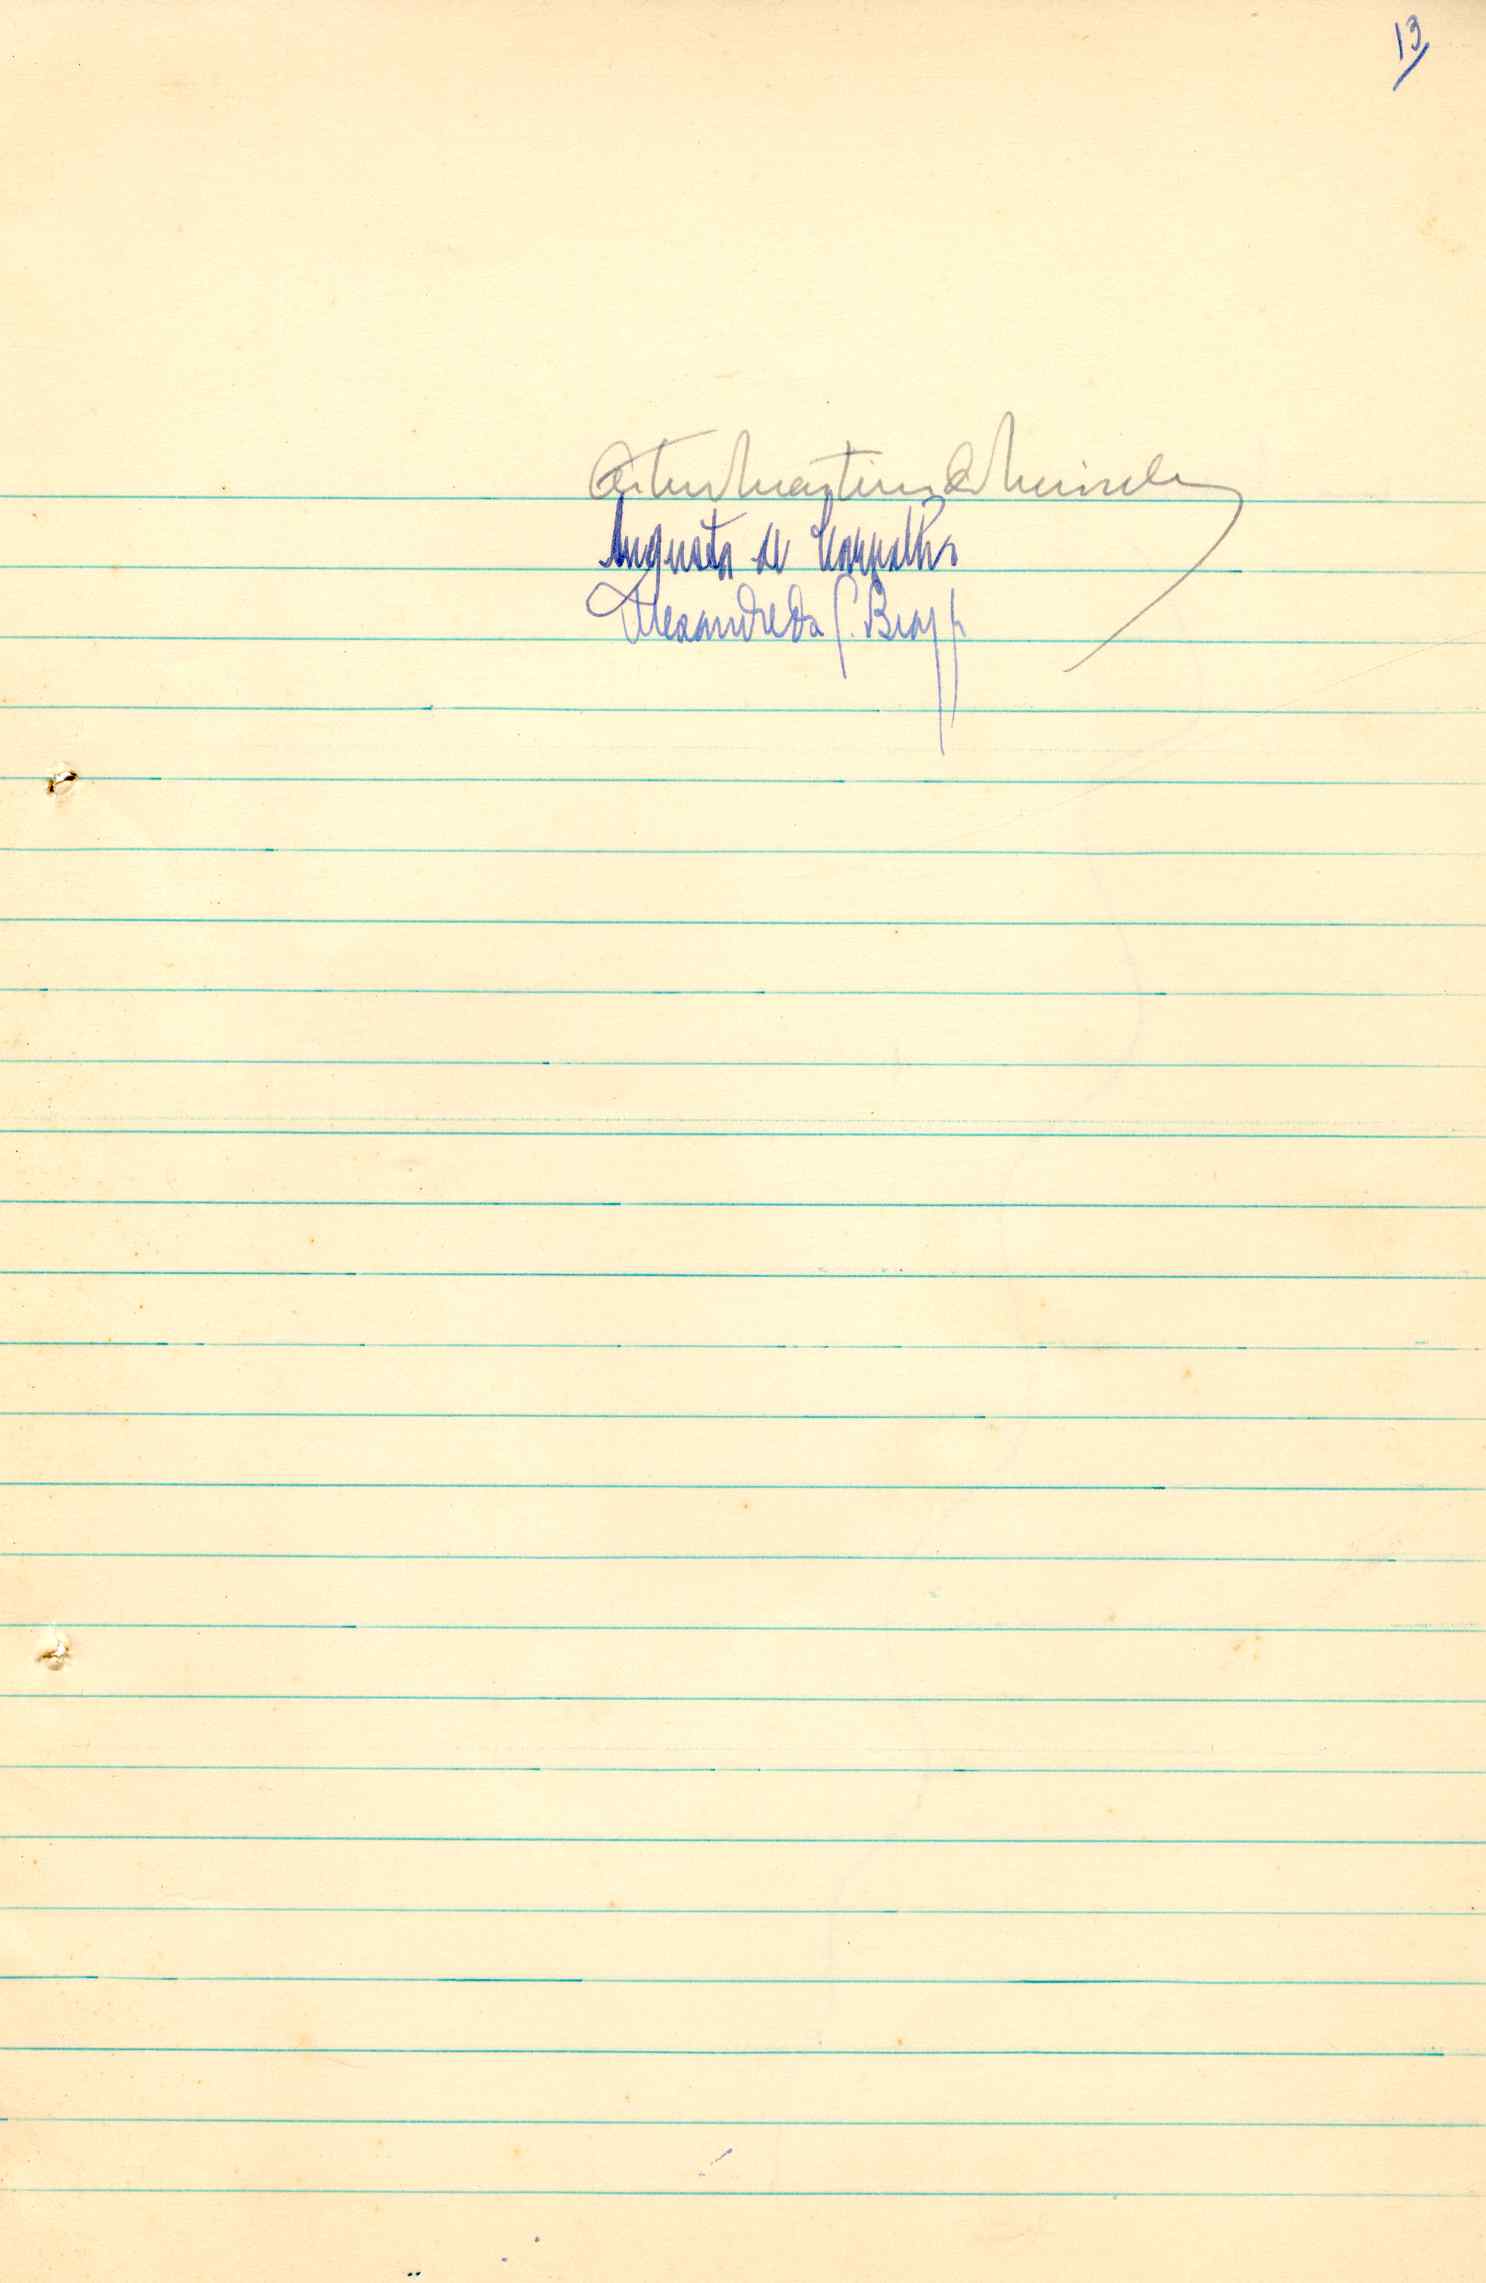 13
Artur Martins de Meireles
Augusto de Carvalho
Alexandre da S. Braga